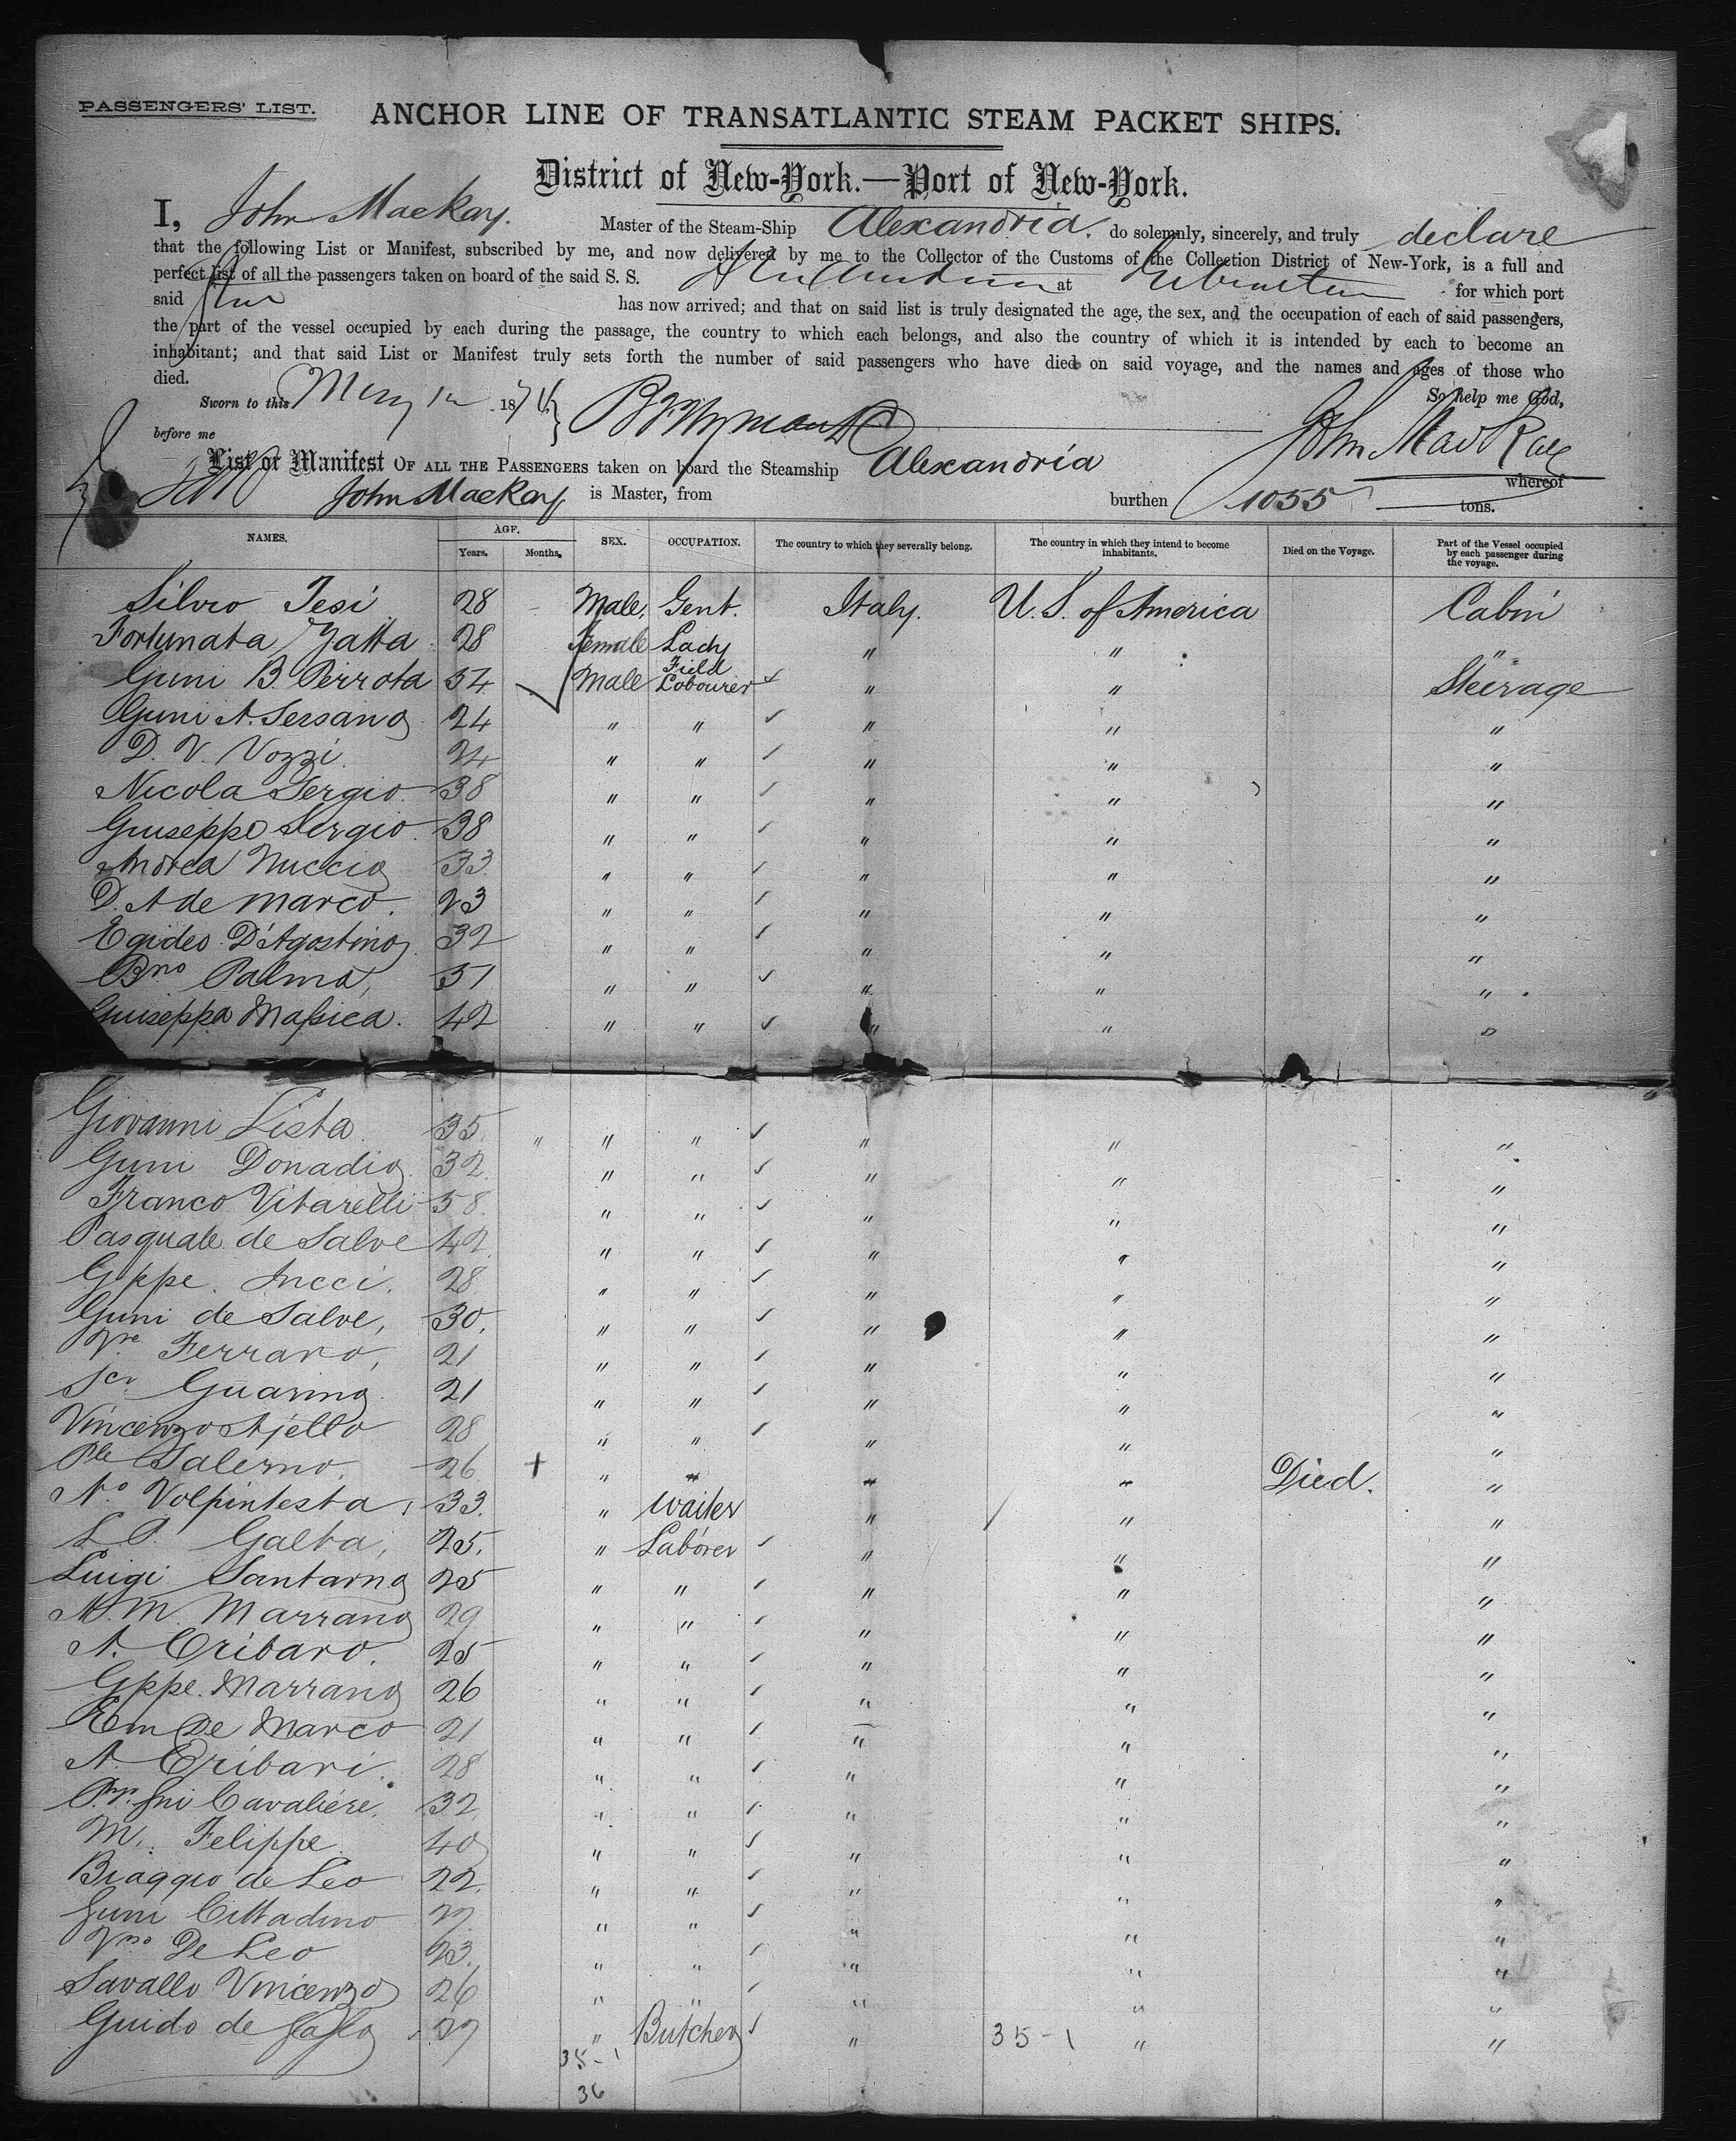 PASSENGERS' LIST.
ANCHOR LINE OF TRANSATLANTIC STEAM PACKET SHIPS.
District of New-York.—Port of New-York.
I, John Mackay. Master of the Steam-Ship Alexandria. do solemnly, sincerely, and truly declare
that the following List or Manifest, subscribed by me, and now delivered by me to the Collector of the Customs of the Collection District of New-York, is a full and
perfect list of all the passengers taken on board of the said S. S. at for which port
said has now arrived; and that on said list is truly designated the age, the sex, and the occupation of each of said passengers,
the part of the vessel occupied by each during the passage, the country to which each belongs, and also the country of which it is intended by each to become an
inhabitant; and that said List or Manifest truly sets forth the number of said passengers who have died on said voyage, and the names and ages of those who
died. So help me God,
Sworn to this May 187
before me John MacKay
List or Manifest OF ALL THE PASSENGERS taken on board the Steamship Alexandria whereof
John Mackay is Master, from burthen 1055 tons.
NAMES. AGE. Years. Months. SEX. OCCUPATION. The country to which they severally belong. The country in which they intend to become inhabitants. Died on the Voyage. Part of the Vessel occupied by each passenger during the voyage.
Silvio Tesi 28 - Male, Gent. Italy. U. S. of America Cabin
Fortunata Gatta 28 Female Lady " " "
Guni B. Perrota 34 Male Field Labourer " " Steerage
Guni A. Sersano 24 " " " " "
D. V. Vozzi. 24 " " " " "
Nicola Sergio. 38 " " " " "
Guiseppe Sergio. 38 " " " " "
Andrea Nuccio 33. " " " " "
D. A de Marco. 23 " " " " "
Egideo D'Agostino 32 " " " " "
Bno Palma, 31 " " " " "
Guiseppa Massica. 42 " " " " "
Giovanni Lista 35. " " " " " "
Guni Donadio 32. " " " " "
Franco Vitarelli 58. " " " " "
Pasquale de Salve 42. " " " " "
Gppe. Incci. 28. " " " " "
Guni de Salve, 30. " " " " "
Vre Ferraro, 21 " " " " "
Guarino. 21 " " " " "
Vincenzo Ajello 28 " " " " "
Ple Salerno. 26. + " " " " Died. "
No Volpintesta, 33. " Waiter " " "
L. P. Galta, 25. " Laborer " " "
Luigi Santarno 25 " " " " "
A. M. Marrano 29 " " " " "
A. Cribaro. 25 " " " " "
Gppe. Marrano 26 " " " " "
Em De Marco 21 " " " " "
A. Cribari. 28 " " " " "
Gni Cavaliere. 32. " " " " "
M. Felippe. 40 " " " " "
Biaggio de Leo 22. " " " " "
Guni Cittadino " " " " "
Vno De Leo 23. " " " " "
Savallo Vincenzo 26 " " " " "
Guido de " Butcher " 35-1 " "
35-1
36